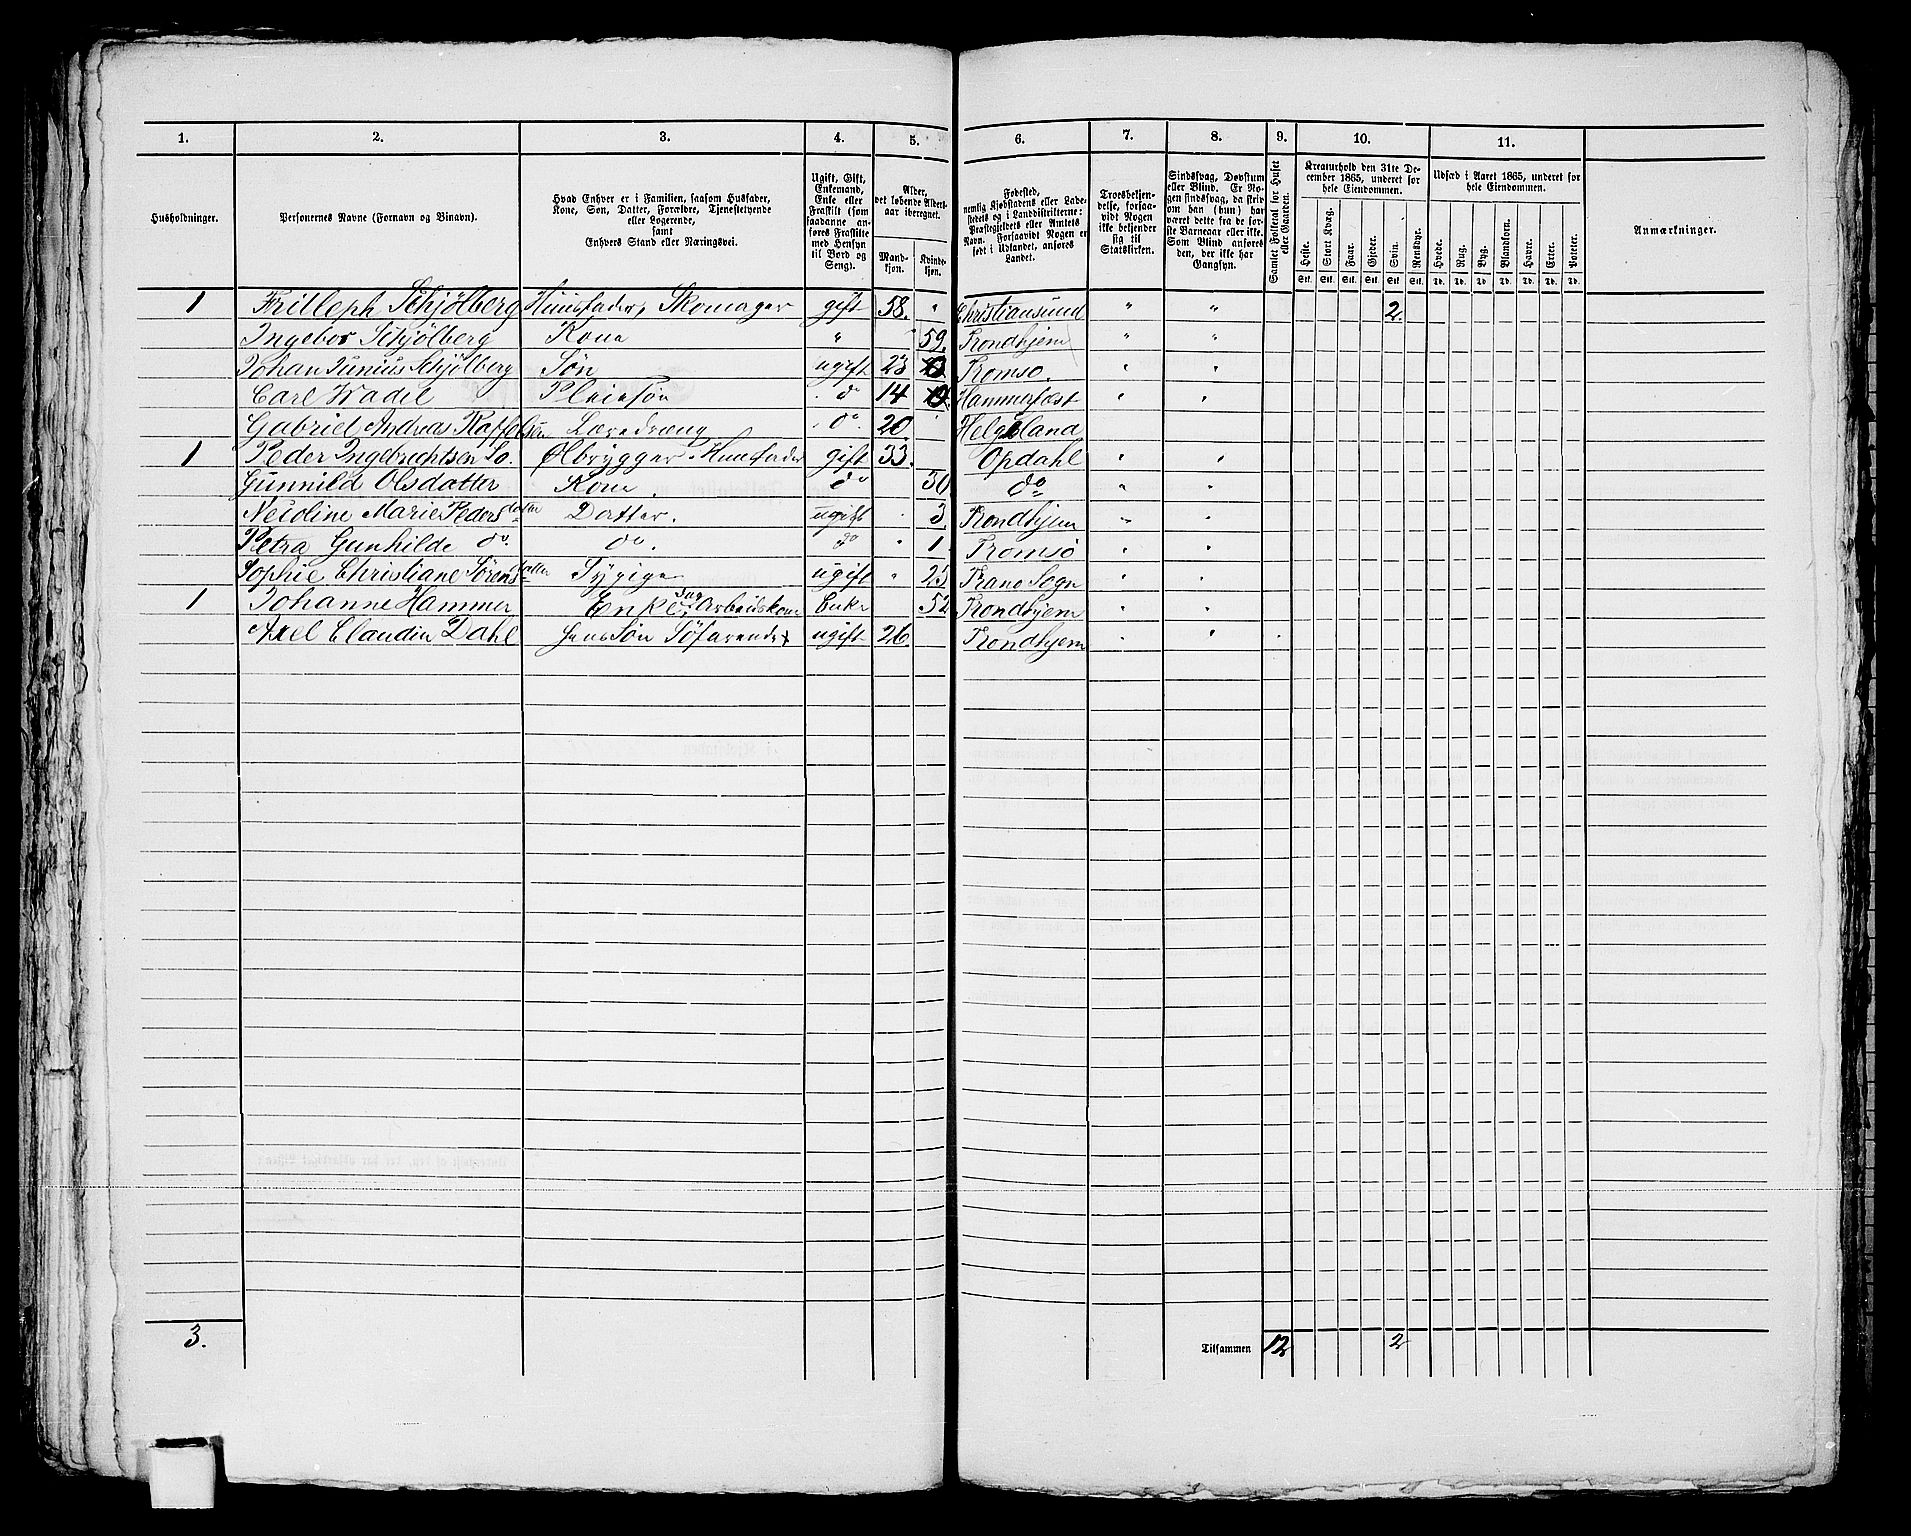 1. 2. 3. 4. 5. 6. 7. 8. 9. 10. 11.
Husholdninger.
Personernes Navne (Fornavn og Binavn).
Hvad Enhver er i Familien, saasom Husfader, Kone, Søn, Datter, Forældre, Tjenestetyende eller Logerende, samt Enhvers Stand eller Næringsvei.
Ugift, Gift, Enkemand, Enke eller Fraskilt (som saadanne anføres Fraskilte med Hensyn til Bord og Seng).
Alder, det løbende Aldersaar iberegnet.
Mandkjøn. Kvindekjøn.
Fødested, nemlig Kjøbstadens eller Ladestedets og i Landdistrikterne: Præstegjeldets eller Amtets Navn. Forsaavidt Nogen er født i Udlandet, anføres Landet.
Troesbekjendelse, forsaavidt Nogen ikke bekjender sig til Statskirken.
Sindssvag, Døvstum eller Blind. Er Nogen sindssvag, da skrives om han (hun) har været dette fra de første Barneaar eller ikke. Som Blind anføres den, der ikke har Gangsyn.
Samlet Folketal for Huset eller Gaarden.
Kreaturhold den 31te December 1865, underet for hele Eiendommen.
Heste. Stort Kvæg. Faar. Gjeder. Svin. Rensdyr.
Stk. Stk. Stk. Stk. Stk. Stk.
Udsæd i Aaret 1865, underet for hele Eiendommen.
Hvede. Rug. Byg. Blandkorn. Havre. Erter. Poteter.
Td. Td. Td. Td. Td. Td. Td.
Anmærkninger.
1 Frilleph Schjölberg Huusfader, Skomager gift 58. " Christiansund " " 2.
Ingebor Schjölberg Kone " " 59. Trondhjem " "
Johan Junius Schjölberg Søn ugift 23 Tromsø. " "
Carl Wadel Pleiesøn do 14 Hammerfest " "
Gabriel Andreas Raffelsen Læredreng do. 20 " Helgeland
1 Peder Ingebrichtsen So. Ølbrygger Huusfader gift 33. Opdahl " "
Gunnild Olsdatter Kone. do 30 do " "
Nicoline Marie Pedersdatter Datter. ugift . 3. Trondhjem " "
Petra Gunhilde do. do. do " 1. Tromsö " "
Sophie Christiane Sörensdatter Sypige ugift " 25 Trano Sogn " "
1 Johanne Hammer Enke, Arbeidskone Enke 52 Trondhjem " "
Axel Claudin Dahl hens Søn Søfarende ugift 26. Trondhjem " "
3. Tilsammen 12 2